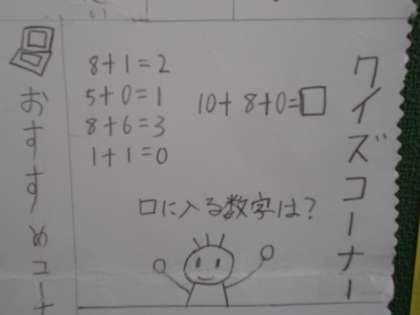 クイズコーナー
8+1=2
5+0=1
8+6=3
1+1=0
10+8+0=□
□に入る数字は?
おすすめコー